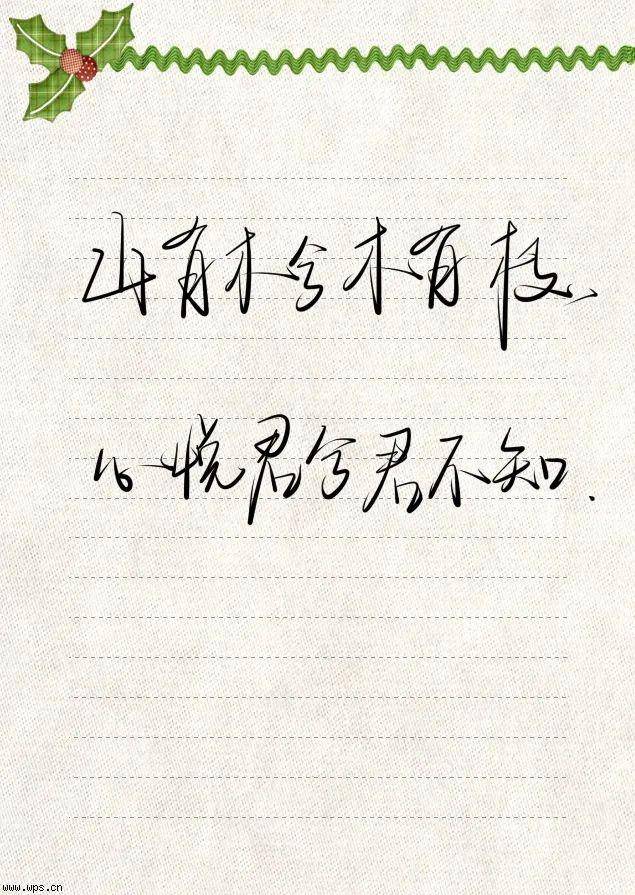 山有木兮木有枝、
心悦君兮君不知.
www.wps.cn